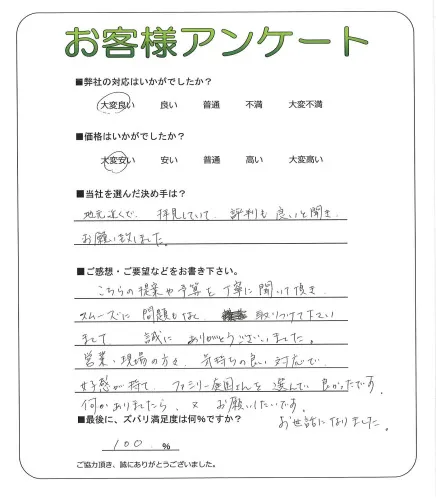 お客様アンケート
■弊社の対応はいかがでしたか？
大変良い 良い 普通 不満 大変不満
■価格はいかがでしたか？
大変安い 安い 普通 高い 大変高い
■当社を選んだ決め手は？
地元近くで、拝見していて、評判も良いと聞き、
お願い致しました。
■ご感想・ご要望などをお書き下さい。
こちらの提案や予算を丁寧に聞いて頂き
スムーズに問題もなく 取りつけて下さい
まして 誠に ありがとうございました。
営業・現場の方々、気持ちの良い対応で
好感が持て、ファミリー庭園さんを選んで良かったです。
何かありましたら、又 お願いしたいです。
■最後に、ズバリ満足度は何％ですか？
お世話になりました。
100 ％
ご協力頂き、誠にありがとうございました。